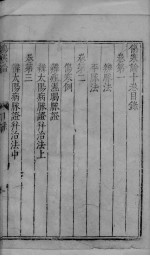 傷寒論十卷目錄
卷第一
辨脈法
平脈法
卷第二
傷寒例
辨痓濕暍脈證
辨太陽病脈證并治法上
卷第三
辨太陽病脈證并治法中